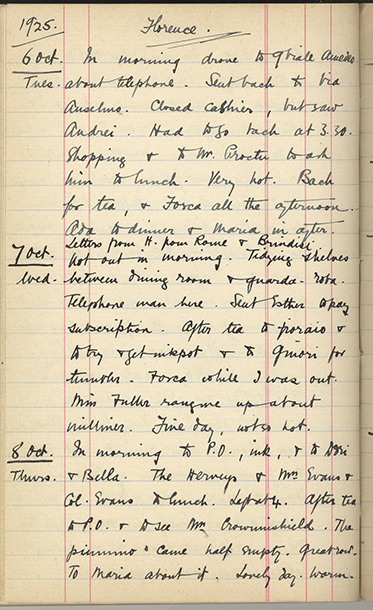 1925. Florence.
6 Oct. In morning drove to 9 viale Amedeo
Tues. about telephone. Sent back to via
Anselmo. Closed cashier, but saw
Andrei. Had to go back at 3.30.
Shopping & to Mr. Procter to ask
him to lunch. Very hot. Back
for tea, & Forca all the afternoon.
Ada to dinner & Maria in after.
Letters from H. from Rome & Brindisi.
7 Oct. Not out in morning. Tidying shelves
Wed. between dining room & guarda-roba.
Telephone man here. Sent Esther to pay
subscription. After tea to fioraio &
to try & get inkpot & to Ginori for
tumbler. Forca while I was out.
Miss Fuller rang me up about
milliner. Fine day, not so hot.
8 Oct. In morning to P.O., ink, & to
Thurs. & Bella. The Herveys & Mrs Evans &
Col. Evans to lunch. Left at 4. After tea
to P.O. & to see Mrs Crowninshield. The
"piumino" came half empty. Great row.
To Maria about it. Lovely day. Warm.